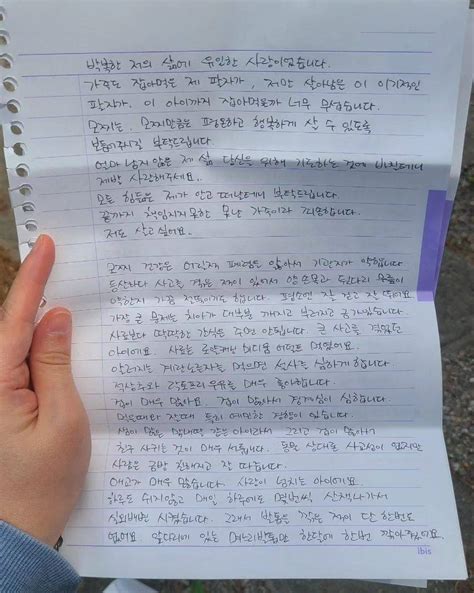 박복한 저의 삶에 유일한 사랑이었습니다.
가족도 잡아먹은 제 팔자가, 저만 살아남은 이 이기적인
팔자가. 이 아이까지 잡아먹을까 너무 무섭습니다.
모찌는, 모찌만큼은 평온하고 행복하게 살 수 있도록
보듬어주시길 부탁드립니다
얼마 남지 않은 제 삶 당신을 위해 기도하는 것에 바칠테니
제발 사랑해주세요..
모든 힘듦은 제가 안고 떠날테니 부탁드립니다.
끝까지 책임지지 못한 못난 가족이라 죄송합니다.
저도 살고 싶어요.
모찌 건강은 어릴때 폐렴을 앓아서 기관지가 약합니다
등산하다 사고를 겪은 적이 있어서 양 손목과 뒷다리 무릎이
약한지 가끔 절뚝이기도 합니다. 평소엔 잘 걷고 잘 뛰어요
가장 큰 문제는 치아가 대부분 깨지고 부러지고 금가있습니다.
사료보다 딱딱한 간식은 주면 안됩니다. 큰 사고를 겪었던
아이에요. 사료는 로얄캐닌 미디움 어덜트 먹였어요.
알러지는 계란노른자를 먹으면 설사를 심하게 합니다
락토프리 우유를 매우 좋아합니다.
겁이 매우 많아요. 겁이 많아서 경계심이 심합니다.
먹을때와 잘때 특히 예민한 경향이 있습니다.
그리고 겁이 많아서
친구 사귀는 것이 매우 서툽니다. 동물 상대로 사교성이 없지만
사람은 금방 친해지고 잘 따릅니다.
애교가 매우 많습니다. 사랑이 넘치는 아이에요.
하루도 쉬지않고 매일 하루에도 몇번씩 산책나가서
실외배변 시켰습니다. 그래서 발톱은 깎은 적이 단 한번도
없어요. 앞다리에 있는 며느리발톱만 한달에 한번 깎아줬어요.
ibis